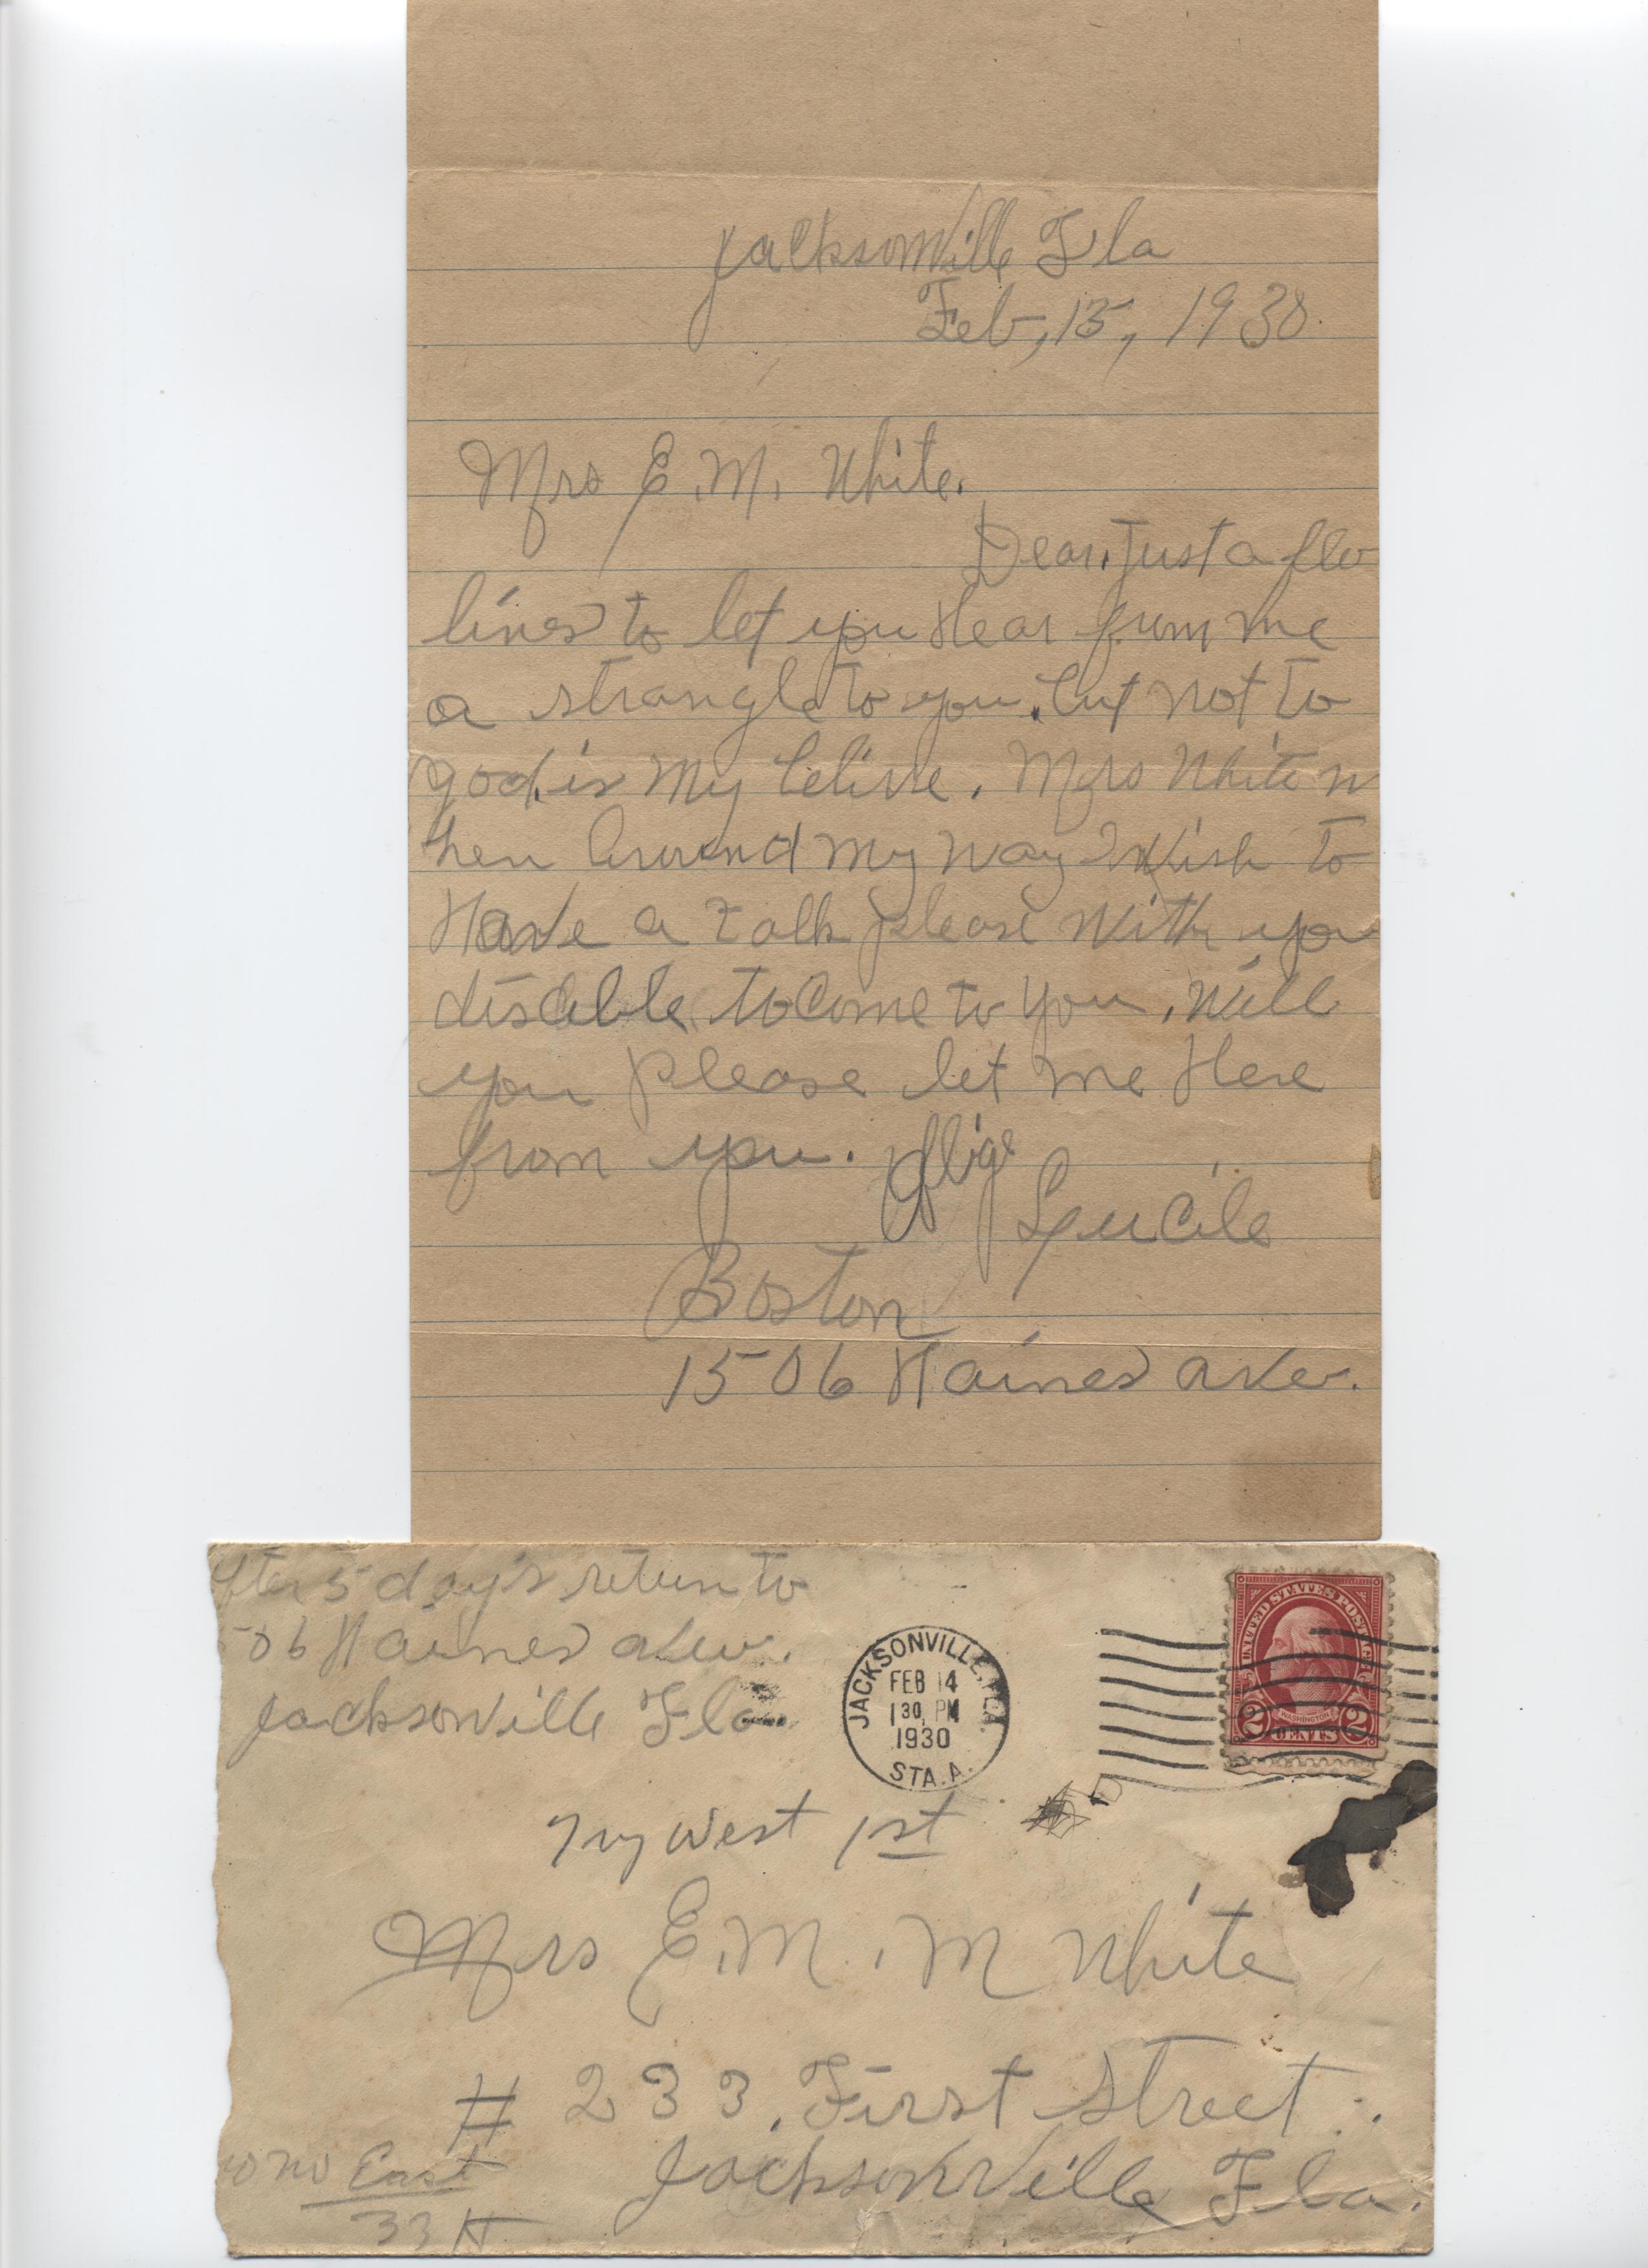 Jacksonville Fla
Feb, 15, 1930.
Mrs E. M. White.
Dear. Just a few
lines to let you Hear from me
a strangle to you. but not to
god. is my belive. Mrs White w
hen around my way I wish to
Have a talk please with you
disable to come to you. Will
you please let me Here
from you.
Lucile
Boston
1506 Haines aver.
fter 5 day's return to
506 Haines aver.
Jacksonville Fla.
JACKSONVILLE, FLA.
FEB 14
1 30 PM
1930
STA. A.
UNITED STATES POSTAGE
WASHINGTON
2 CENTS 2
Try West 1st
Mrs E. M. M White
# 233. First Street.
Jacksonville Fla.
no East
33 H